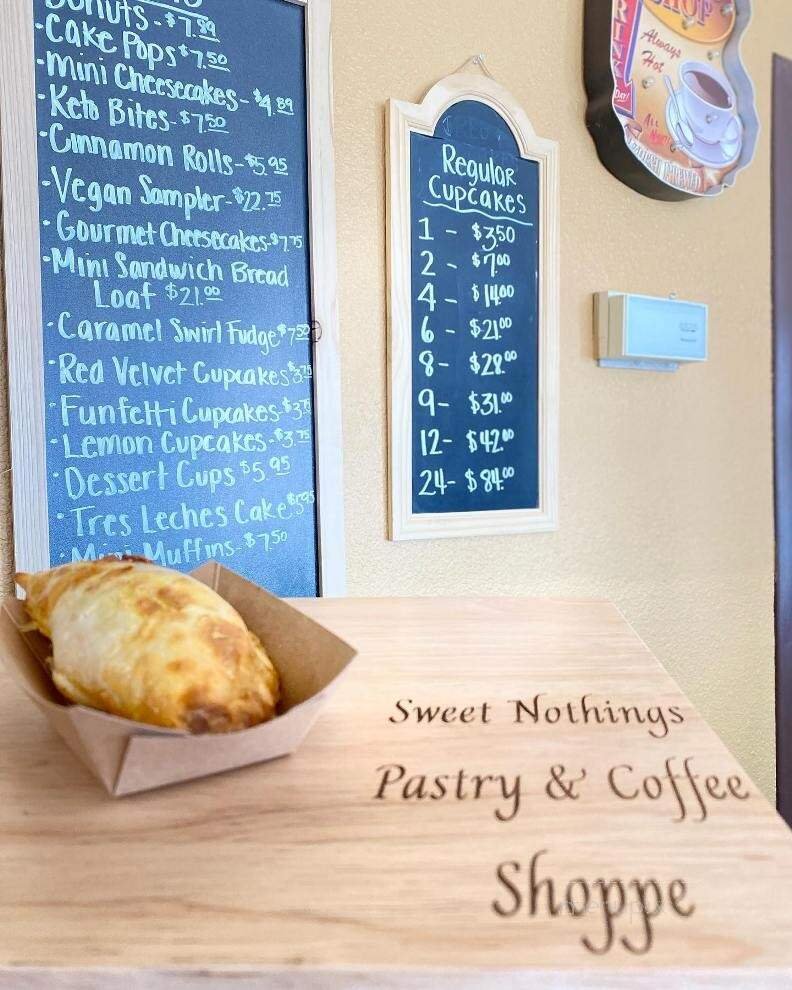 Donuts - $7.89
·Cake Pops $7.50
·Mini Cheesecakes - $4.89
·Keto Bites - $7.50
·Cinnamon Rolls - $5.95
·Vegan Sampler - $22.75
·Gourmet Cheesecakes - $7.75
·Mini Sandwich Bread
Loaf $21.00
·Caramel Swirl Fudge $7.50
·Red Velvet Cupcakes $3.75
·Funfetti Cupcakes - $3.75
·Lemon Cupcakes - $3.75
·Dessert Cups $5.95
·Tres Leches Cake $5.95
·Mini Muffins - $7.50
Regular
Cupcakes
1 - $3.50
2 - $7.00
4 - $14.00
6 - $21.00
8 - $28.00
9 - $31.00
12 - $42.00
24 - $84.00
SHOP
Always
Hot
DAY!
Sweet Nothings
Pastry & Coffee
Shoppe